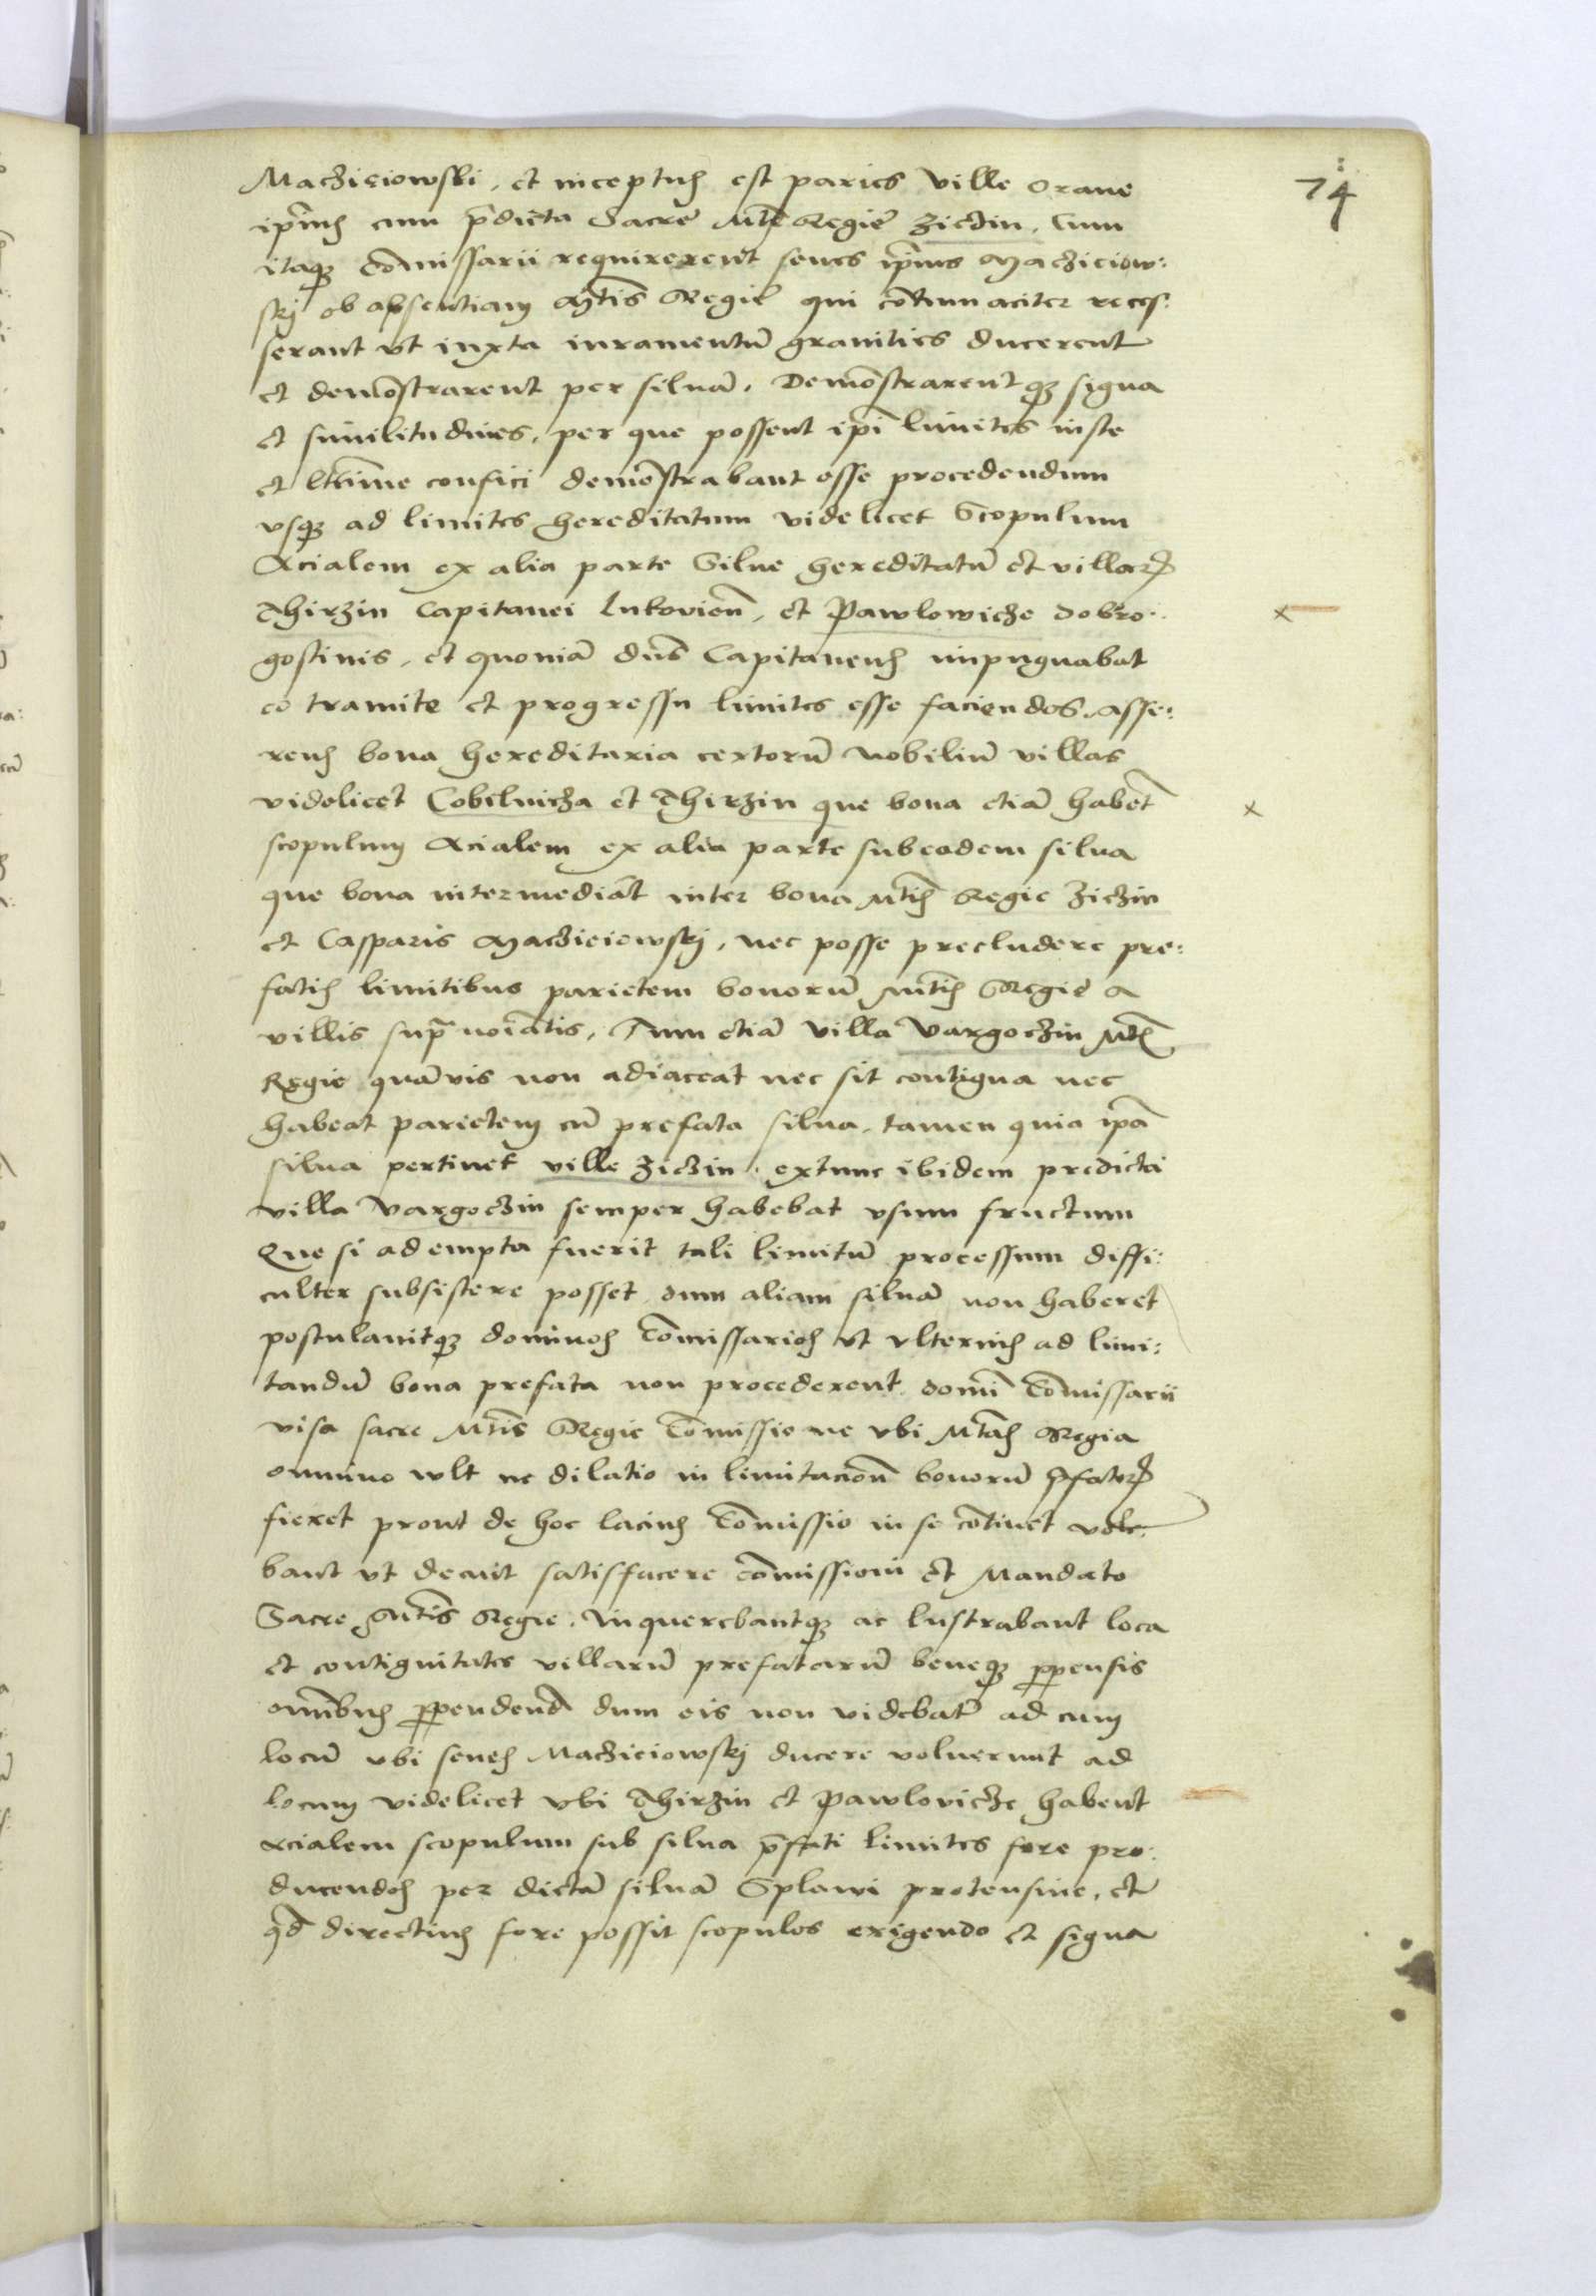 74
Machieiowski, et inceptus est paries ville Orane
ipsius cum p̄dicta Sacre Mt̄e Regie Ziczin, Cum
itaqꝫ Com̄issarii requirerent senes ip̄ius Machieiow:
skỹ ob absentiam Mt̄is Regie qui cōtumaciter reces:
serant vt iuxta iuramentū granities ducerent
et demōstrarent per siluā. Demōstrarentqꝫ signa
et similitudines, per que possent ip̄i limites iuste
et l̄time confici demōstrabant esse procedendum
vsqꝫ ad limites hereditatum videlicet Scopulum
Acialem ex alia parte Silue hereditatū et villarꝝ
Thirzin Capitanei Lukovien̄, et Pawlowicze Dobro:
gostinis, et quoniā dn̄s Capitaneus impugnabat
eo tramite et progressu limites esse faciendos, Asse:
rens bona hereditaria certorū nobiliū villas
videlicet Cobilnicza et Thirzin que bona etiā habet̄
scopulum Acialem ex alia parte sub eadem silua
que bona intermediāt inter bona Mt̄is Regie Ziczin
et Casparis Machieiowskỹ, nec posse precludere pre:
fatis limitibus parietem bonorū Mt̄is Regie a
villis sup̄ noīatis, Tum etiā villa Vargoczin Mt̄is
Regie quāvis non adiaceat nec sit contigua nec
habeat parietem cū prefata silua, tamen quia ip̄a
silua pertinet ville Ziczin, extunc ibidem predicta
villa Vargoczin semper habebat vsum fructum
Que si adempta fuerit tali limitū processum diffi:
culter subsistere posset dum aliam siluā non haberet
postulauitqꝫ dominos Com̄issarios vt vlterius ad limi:
tandū bona prefata non procederent, domī Com̄issarii
visa sacre Mt̄is Regie Com̄issione vbi Mt̄as Regia
omnino vult ne dilatio in limitacion̄ bonorū p̄fatorꝝ
fieret prout de hoc lacius Com̄issio in se cōtinet vole
bant vt decuit satisfacere com̄issioni et Mandato
Sacre Mt̄is Regie. Inquerebantqꝫ ac lustrabant loca
et contiguitates villarū prefatarū beneqꝫ ꝑpensis
omnibus ꝑpendend̄ dum eis non videbatr̄ ad eum
locū vbi senes Machieiowskỹ ducere voluerunt ad
locum videlicet vbi Thirzin et Pawlovicze habent
acialem scopulum sub silua p̄fati limites fore pro:
ducendos per dictā siluā Splawi protensiue, et
qd̄ directius fore possit scopulos erigendo et signa